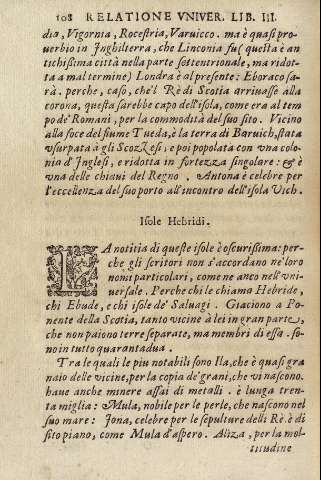 108 RELATIONE VNIVER. LIB. III.
dio, Vigornia, Rocestria, Varuicco. ma è quasi pro-
uerbio in Inghilterra, che Linconia fu (questa è an
tichissima città nella parte settentrionale, ma ridot-
ta a mal termine) Londra è al presente: Eboraco sa-
rà. perche, caso, che'l Rè di Scotia arriuasse alla
corona, questa sarebbe capo dell'isola, come era al tem
po de' Romani, per la commodità del suo sito. Vicino
alla foce del fiume Tueda, è la terra di Baruich, stata
vsurpata à gli Scozzesi, e poi popolata con vna colo-
nia d'Inglesi, e ridotta in fortezza singolare: & è
vna delle chiaui del Regno. Antona è celebre per
l'eccellenza del suo porto all'incontro dell'isola Vich.
Isole Hebridi.
LA notitia di queste isole è oscurissima: per-
che gli scritori non s'accordano ne' loro
nomi particolari, come ne anco nell'vni-
uersale. Perche chi le chiama Hebride,
chi Ebude, e chi isole de' Saluagi. Giaciono a Po-
nente della Scotia, tanto vicine à lei in gran parte,
che non paiono terre separate, ma membri di essa. so-
no in tutto quarantadua.
Tra le quali le piu notabili sono Ila, che è quasi gra
naio delle vicine, per la copia de' grani, che vi nascono.
haue anche minere assai di metalli. è lunga tren-
ta miglia: Mula, nobile per le perle, che nascono nel
suo mare: Jona, celebre per le sepulture delli Rè. è di
sito piano, come Mula d'aspero. Aliza, per la mol-
titudine